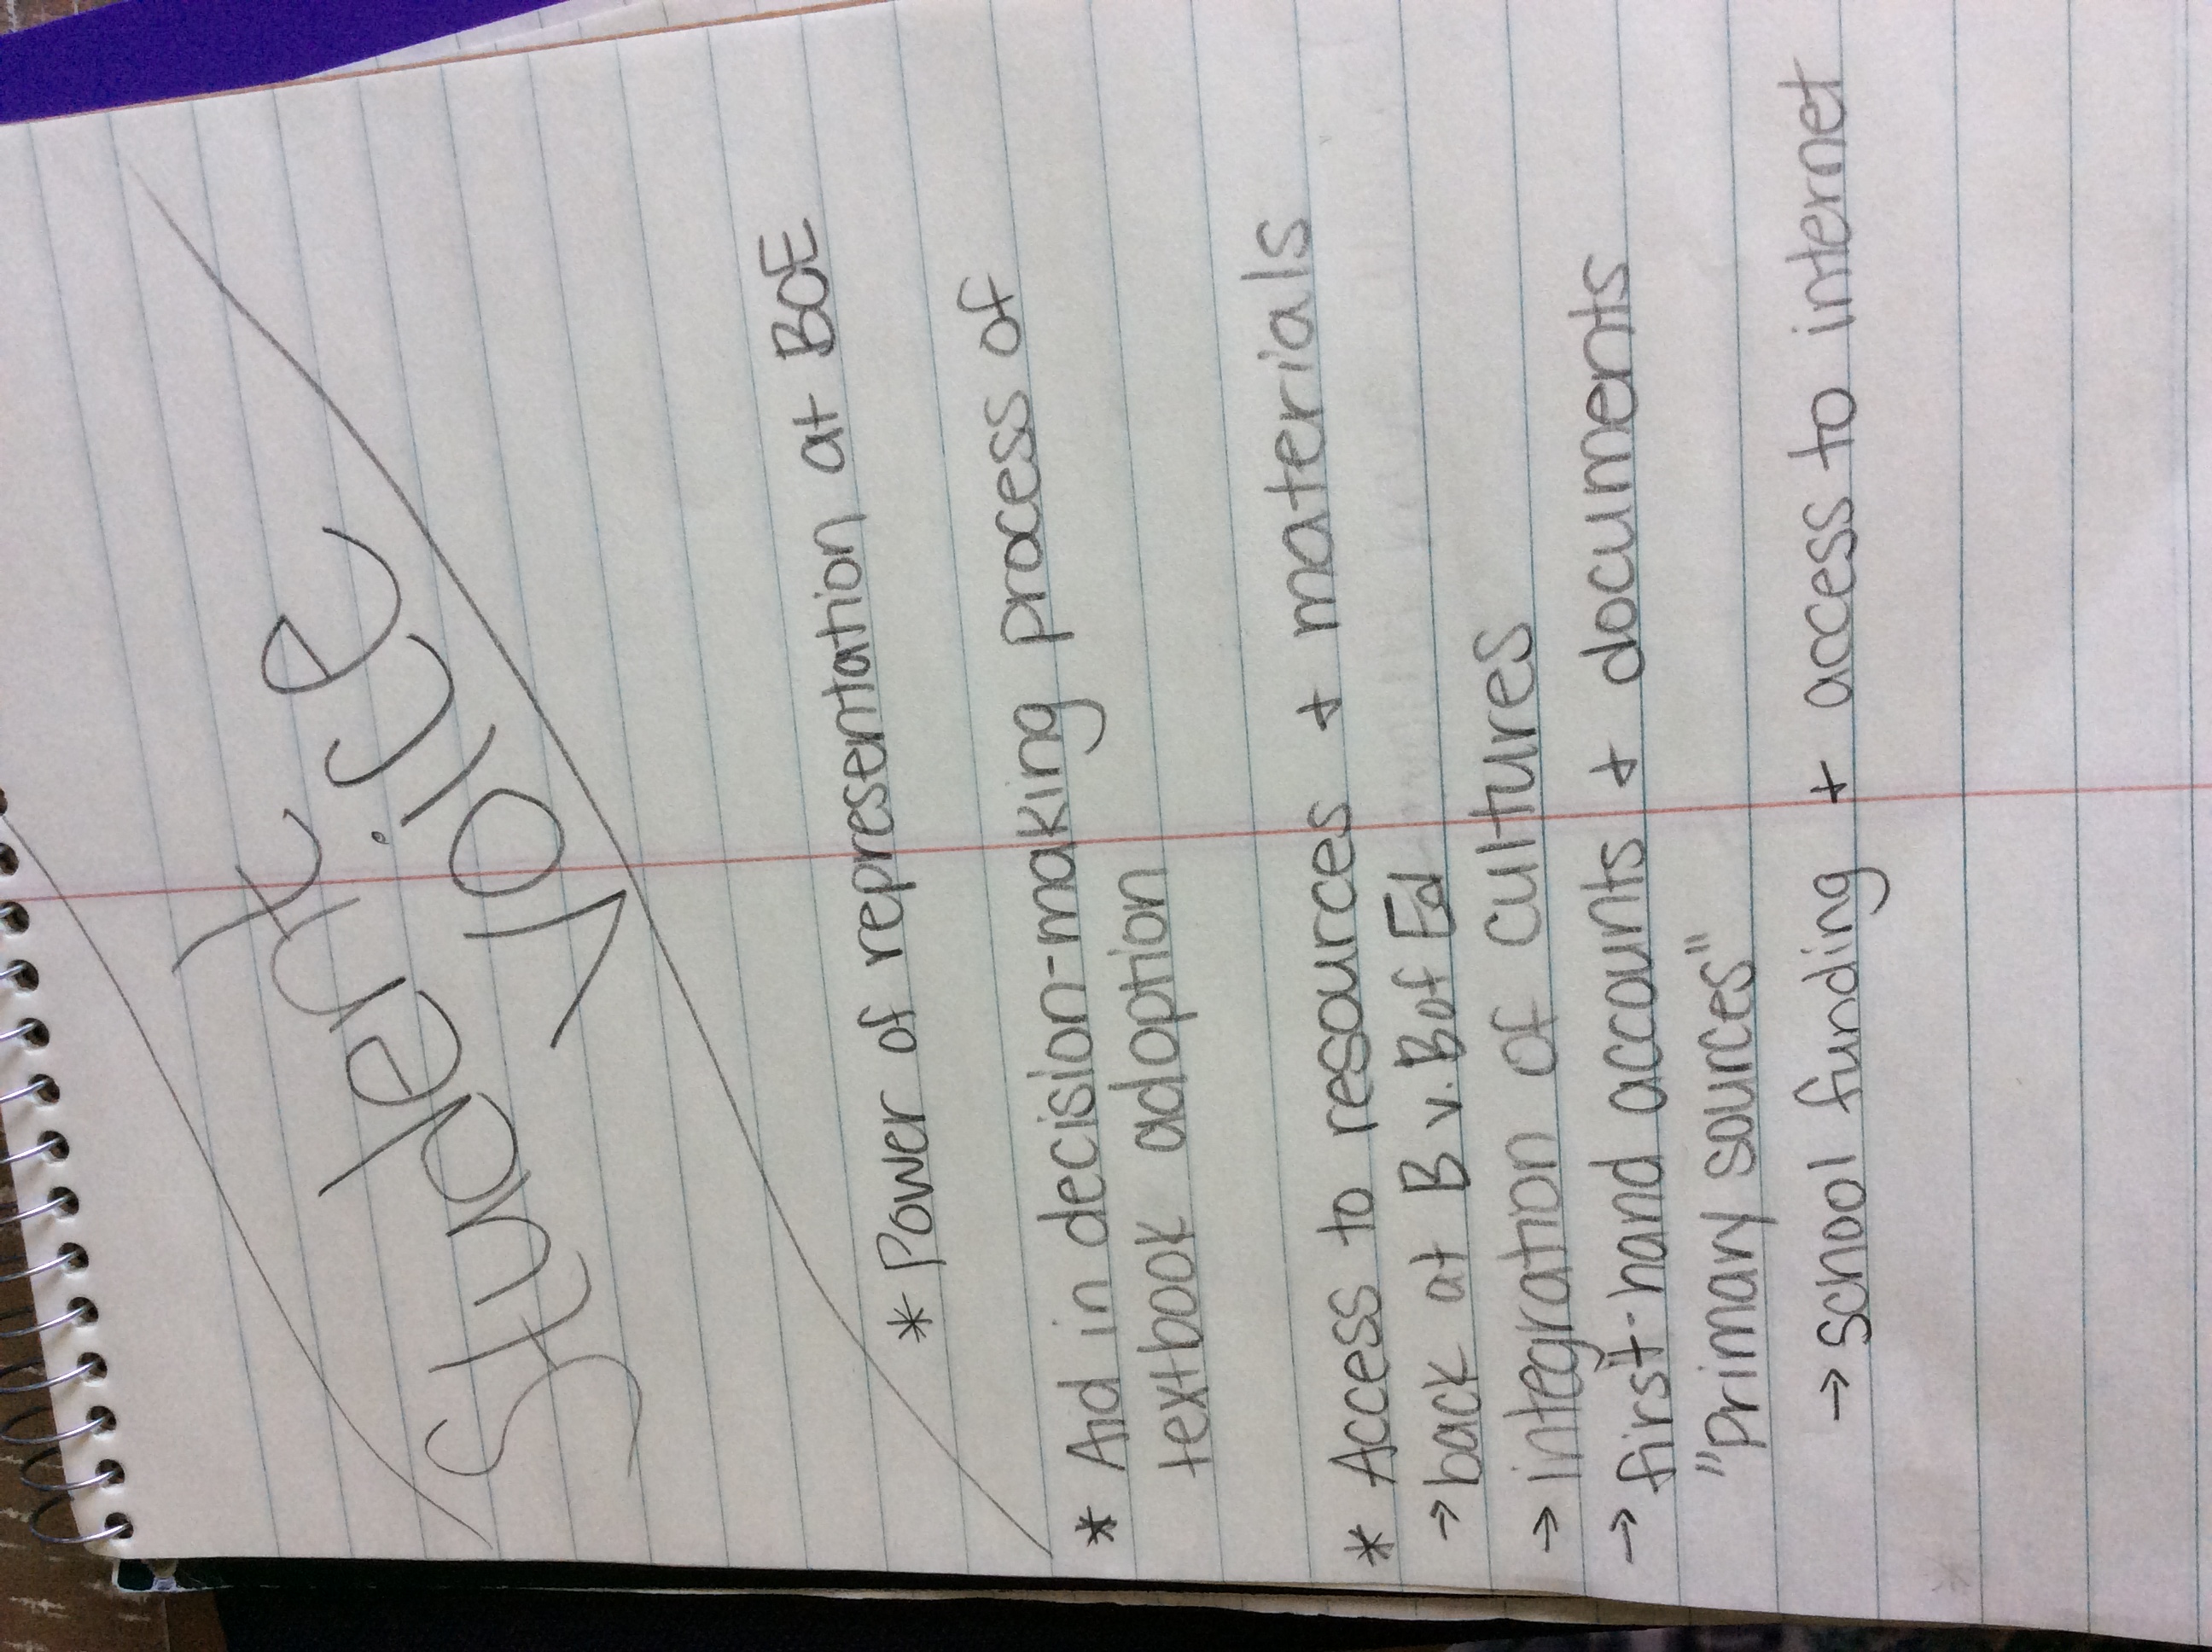 Student
Voice
* Power of representation at BOE
* Aid in decision-making process of
textbook adoption
* Access to resources + materials
→ back at B v. B of Ed
→ integration of cultures
→ first-hand accounts + documents
"Primary sources"
→ school funding + access to internet